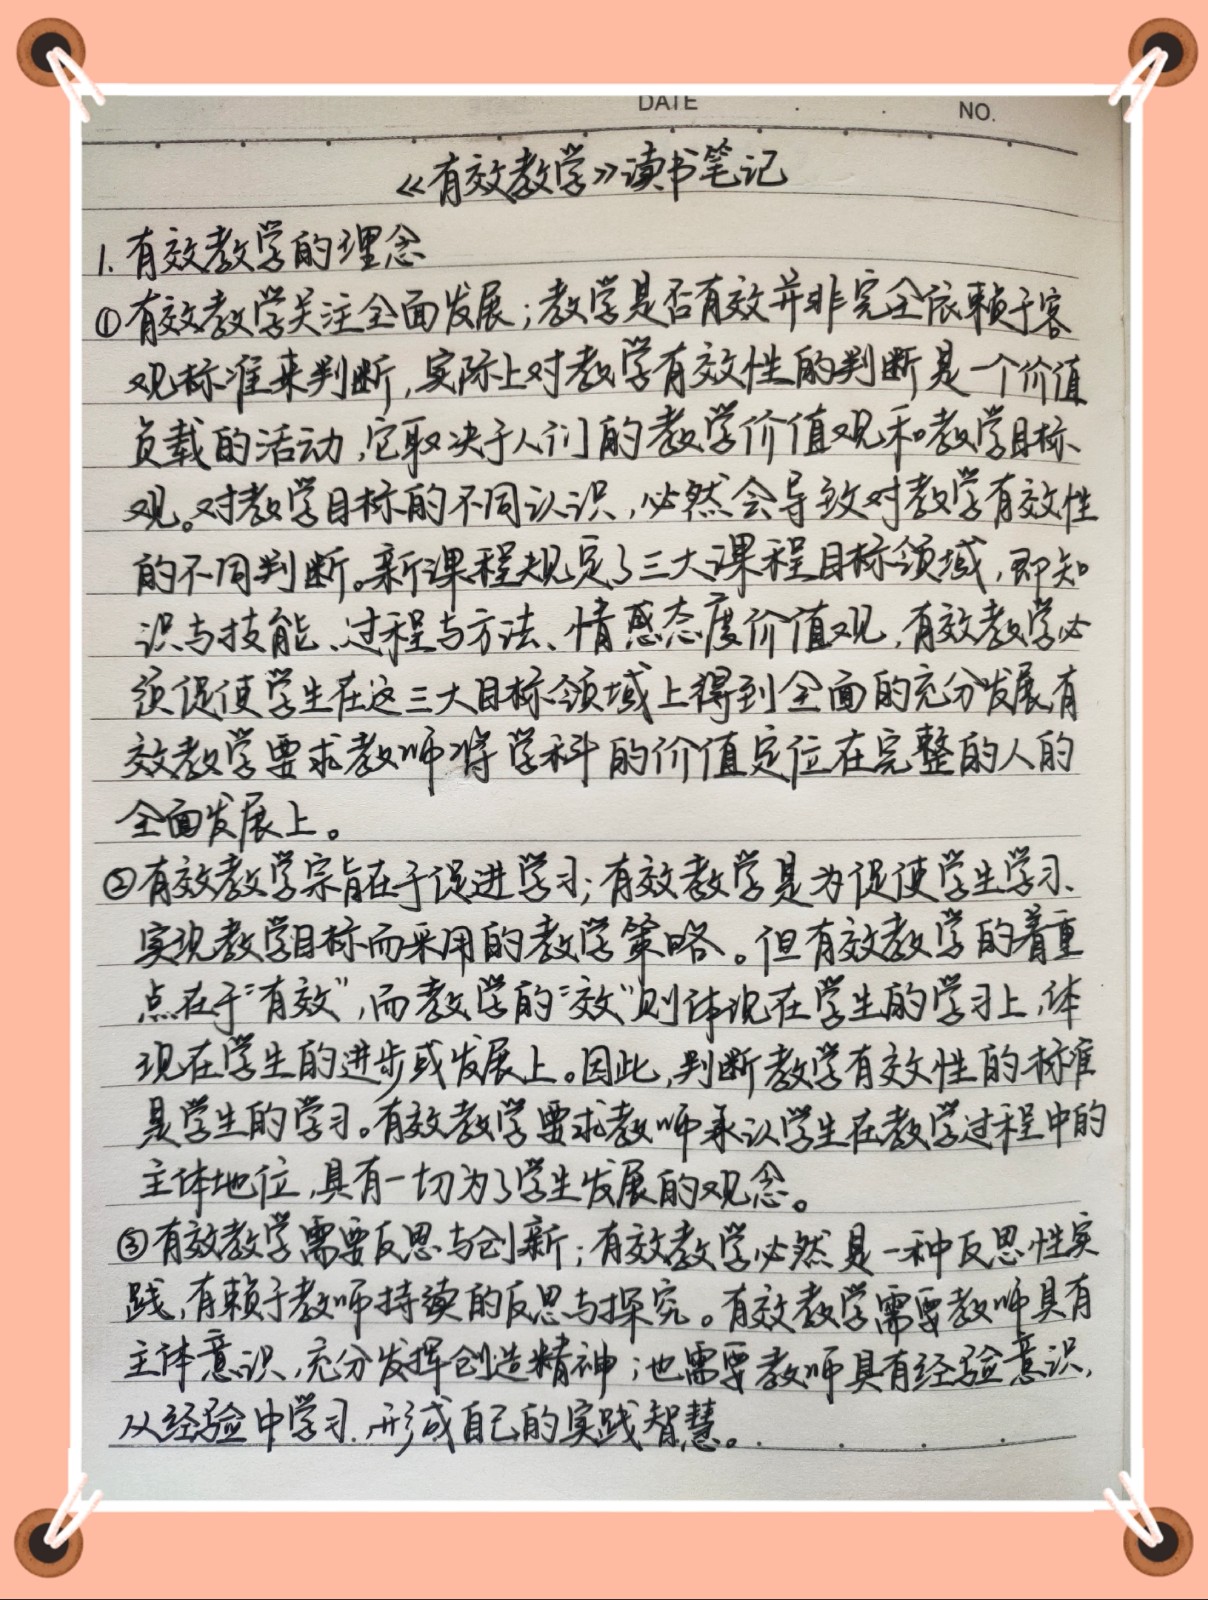 DATE
NO.
《有效教学》读书笔记
1. 有效教学的理念
①有效教学关注全面发展；教学是否有效并非完全依赖于客
观标准来判断，实际上对教学有效性的判断是一个价值
负载的活动，它取决于人们的教学价值观和教学目标
观。对教学目标的不同认识，必然会导致对教学有效性
的不同判断。新课程规定了三大课程目标领域，即知
识与技能、过程与方法、情感态度价值观，有效教学必
须促使学生在这三大目标领域上得到全面的充分发展，有
效教学要求教师将学科的价值定位在完整的人的
全面发展上。
②有效教学宗旨在于促进学习；有效教学是为促使学生学习、
实现教学目标而采用的教学策略。但有效教学的着重
点在于“有效”，而教学的“效”则体现在学生的学习上，体
现在学生的进步或发展上。因此，判断教学有效性的标准
是学生的学习。有效教学要求教师承认学生在教学过程中的
主体地位，具有一切为了学生发展的观念。
③有效教学需要反思与创新；有效教学必然是一种反思性实
践，有赖于教师持续的反思与探究。有效教学需要教师具有
主体意识，充分发挥创造精神；也需要教师具有经验意识，
从经验中学习，形成自己的实践智慧。